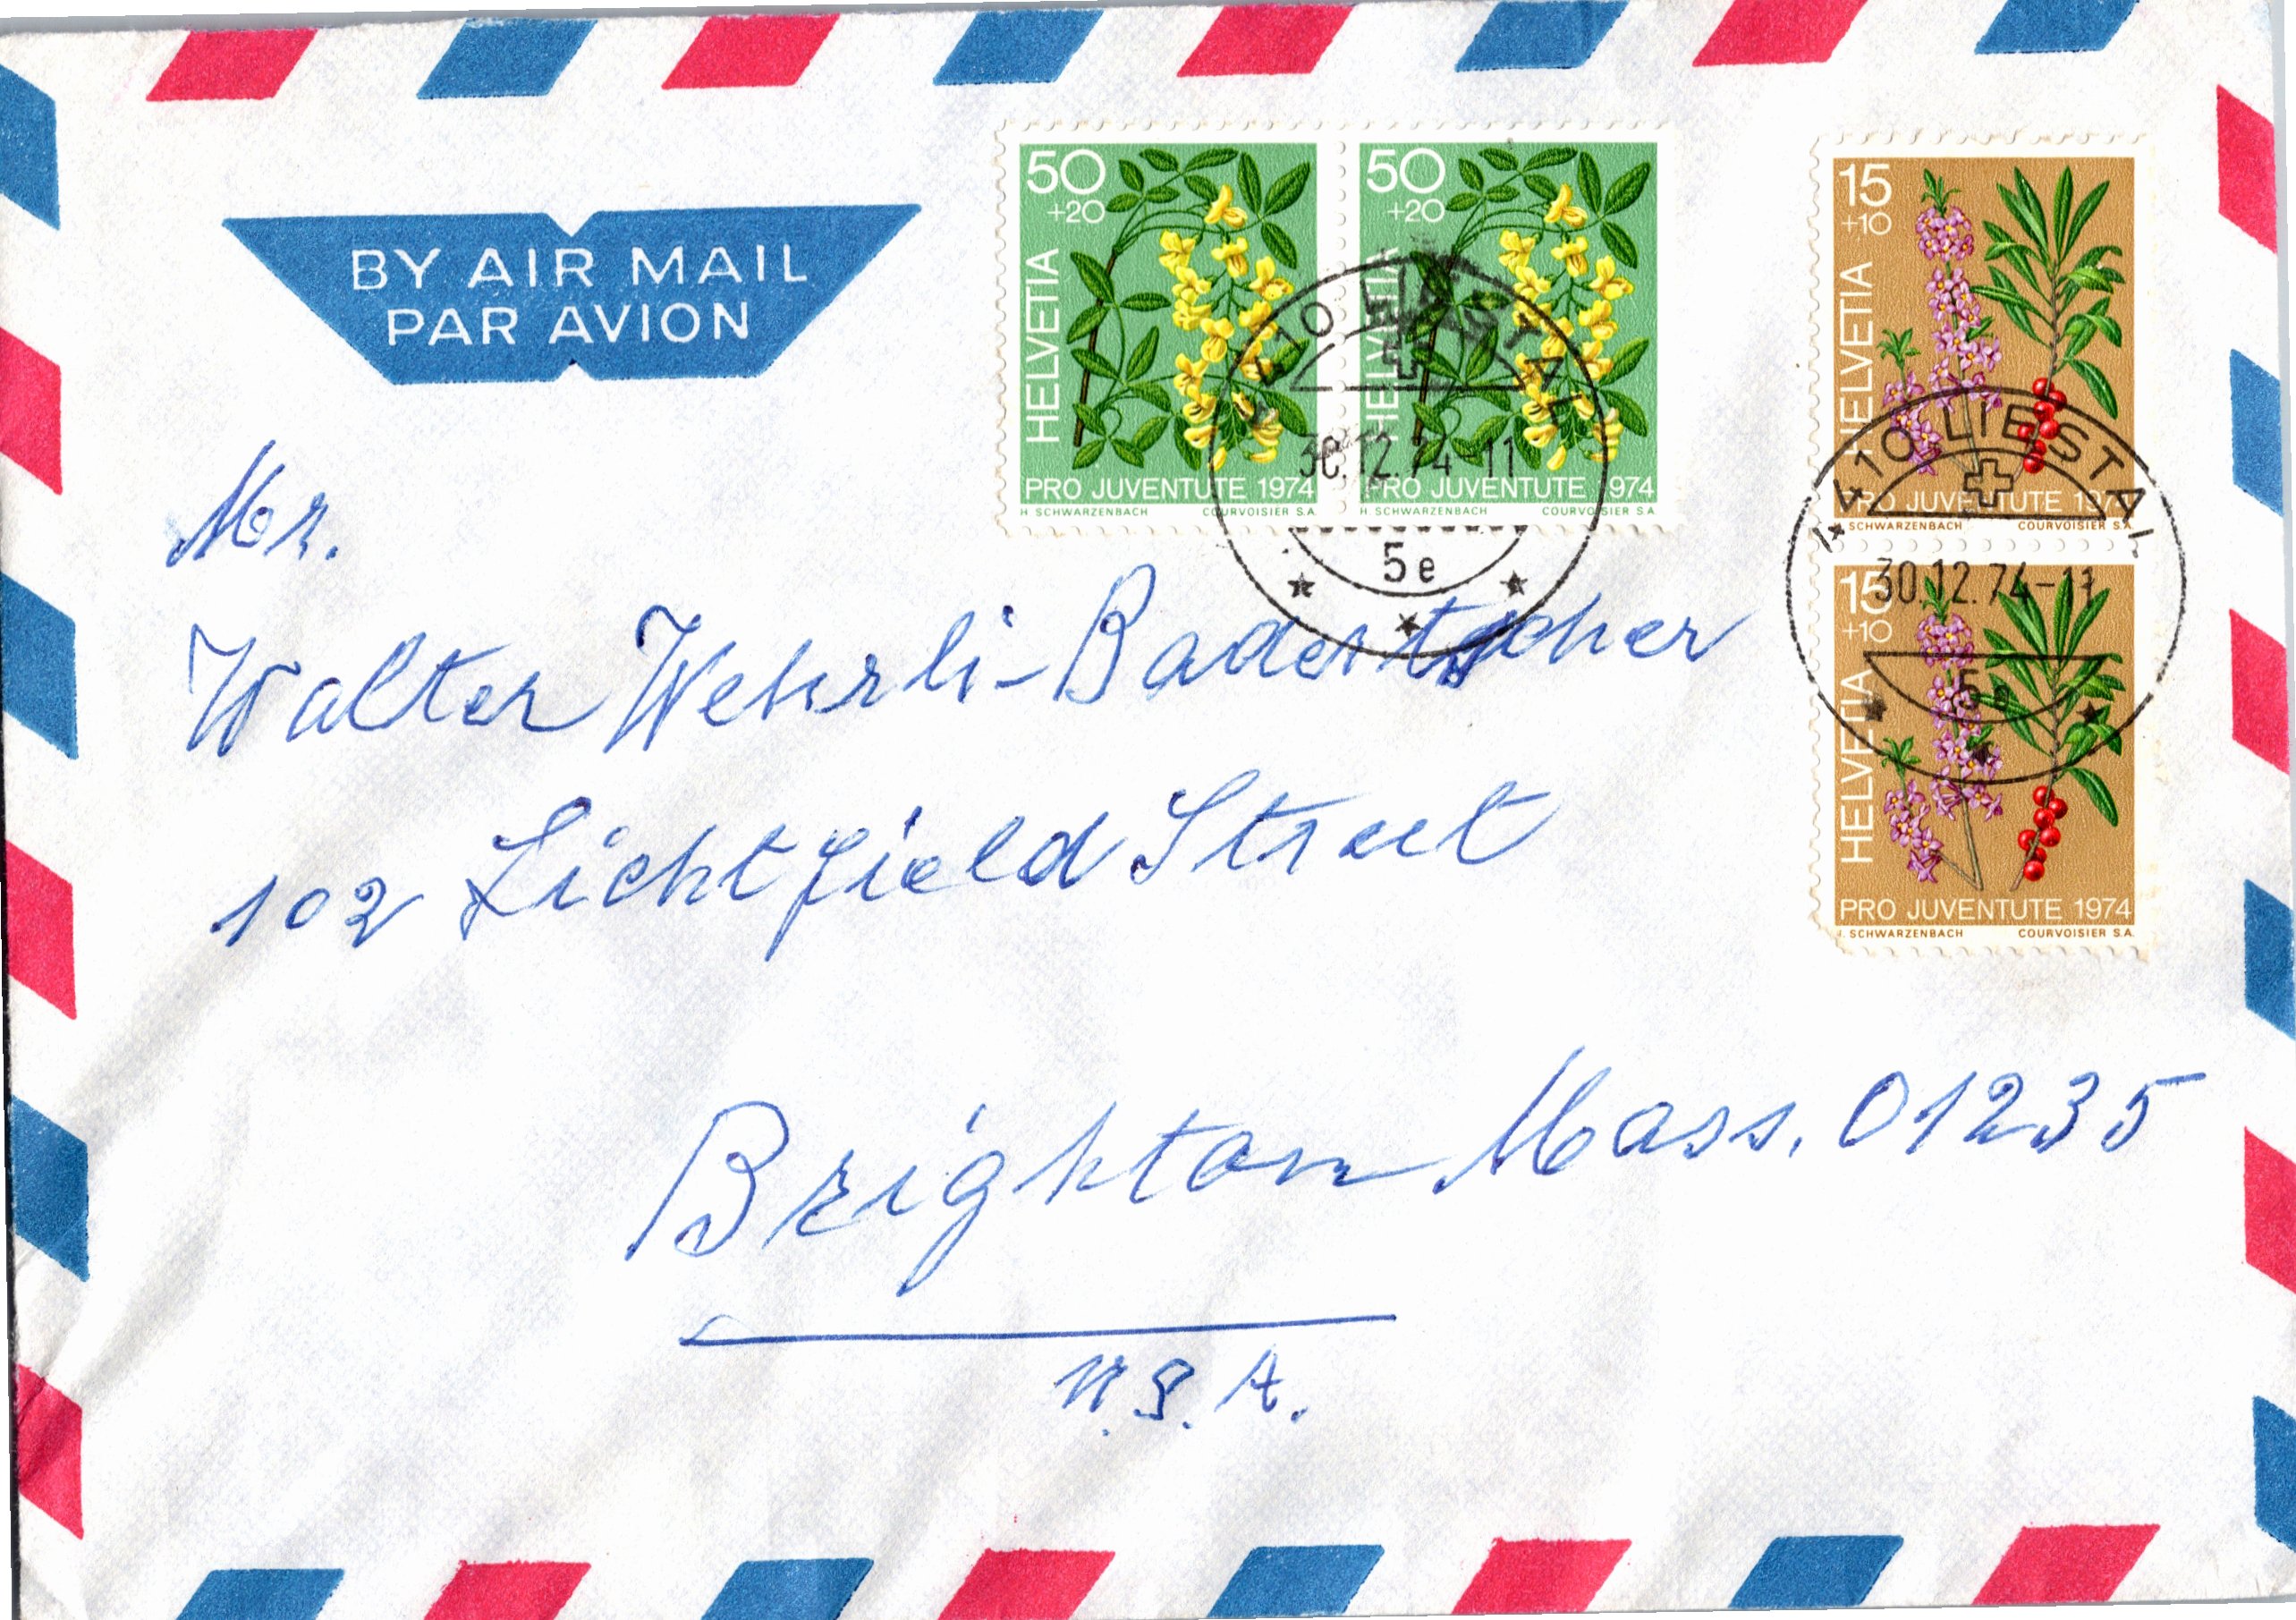 BY AIR MAIL
PAR AVION
50
+20
HELVETIA
PRO JUVENTUTE 1974
H SCHWARZENBACH COURVOISIER S.A.
50
+20
HELVETIA
PRO JUVENTUTE 1974
H SCHWARZENBACH COURVOISIER S A
4410 LIESTAL
30.12.74-11
5e
15
+10
HELVETIA
PRO JUVENTUTE 197
SCHWARZENBACH COURVOISIER S.A.
4410 LIESTAL
30.12.74-11
5e
15
+10
HELVETIA
PRO JUVENTUTE 1974
H. SCHWARZENBACH COURVOISIER S.A.
Mr.
Walter Wehrli-Badertscher
102 Lichtfield Street
Brighton Mass. 01235
U.S.A.